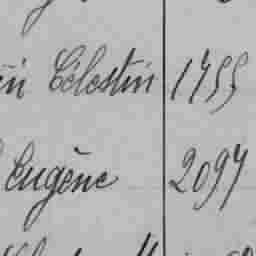 Célestin 1755
Eugène 2097